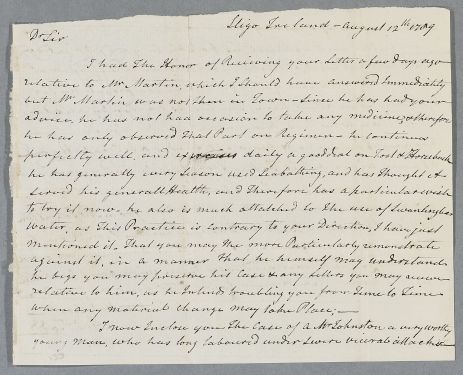 Sligo Ireland - August 12th 1789
Dr Sir
I had The Honor of Reciving your Letter a few Days ago
relative to Mr Martin, which I Should have answerd Immediatly
but Mr Martin was not Then in Town - Since he has had your
advice he has not had occasion to take any medicine, otherfore
he has only observed That Part on Regimen - he continues
perfectly well, and daily a good deal on Foot & Horseback
he has generally every Season used Seabathing, and has Thought it
served his generall Health, and Therefore has a particular wish
to try it now, he also is much attatched to The use of Swanlingbar
Water, as This Practice is contrary to your Direction, I have just
mentioned it, That you may The more Particularly remonstrate
against it, in a manner That he himself may understand
he begs you may preserve his Case & any Letters you may receive
relative to him, as he Intends troubling you from Time to Time
when any material Change may take Place, -
I now Inclose you The Case of a Mr Johnston a very worthy
young Man, who has long laboured under Severe attacks